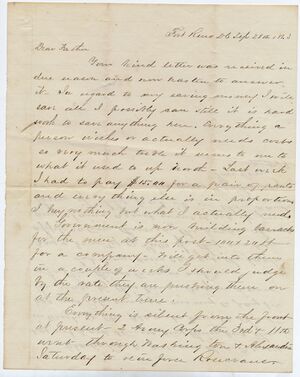 Fort Reno D C Sept 28th 1863
Dear Father
Your kind letter was received in
due season and now hasten to answer
it. In regard to my saving money I will
save all I possibly can still it is hard
work to save anything here. Everything a
person wishes or actually needs costs
so very much with it seems to me
what it used to up North - Last week
I had to pay $5.00 for a pair of pants
and everything else is in proportion
I buy nothing but what I actually need.
Government is now building barracks
for the men at this post
for a company. Will get into them
in a couple of weeks I should judge
by the rate they are pushing them on
at the present time.
Everything is silent from the front
at present 2 Army Corps the 3rd & 11th
went through Washington & Alexandria
Saturday to reinforce Rosecrans